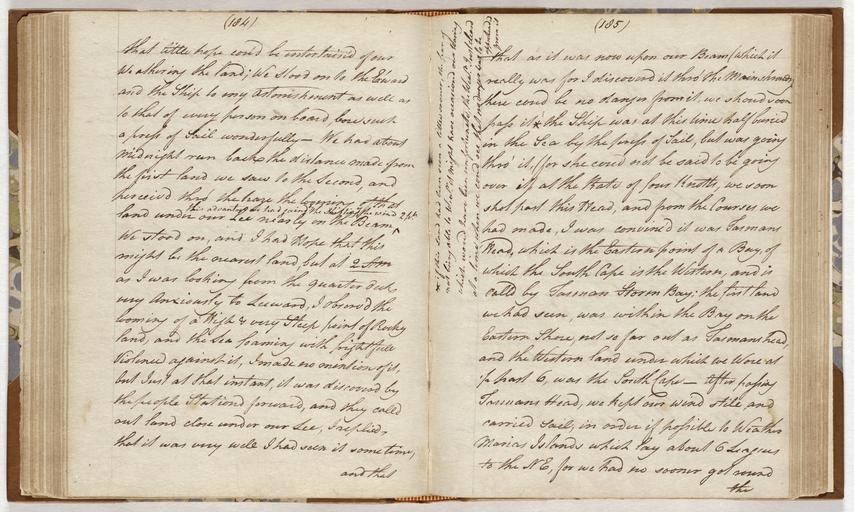 (184)
that little hope could be entertain'd of our
Weathering the land; We stood on to the Estward
and the Ship to my astonishment as well as
to that of every person on board, bore such
a press of Sail wonderfully — We had about
Midnight run back the distance made from
the first land we saw to the Second, and
perceiv'd thro' the haze the looming of that
land under our Lee nearly on the Beam
We stood on, and I had Hope that this
might be the nearest land, but at 2 Am
as I was looking from the quarter deck
very Anxiously to Leeward, I observ'd the
looming of a High & very Steep point of Rocky
land, and the Sea foaming with frightfull
Violence against it, I made no mention of it,
but Just at that instant, it was discover'd by
the people Station'd forward, and they call'd
out land close under our Lee, I replied,
that it was very well I had seen it some time,
and that
(185)
that as it was now upon our Beam (which it
really was for I discover'd it thro' the Main shrouds)
there could be no danger from it, we should soon
pass it * the Ship was at this time half buried
in the Sea by the press of Sail, but was going
thro' it, (for she could not be said to be going
over it) at the Rate of four Knotts, we soon
shot past this Head, and from the Courses we
had made, I was convinc'd it was Tasmans
Head, which is the Eastern point of a Bay, of
which the South Cape is the Western, and is
call'd by Tasman Storm Bay; the first land
we had seen, was within the Bay on the
Eastern Shore, not so far out as Tasmans head,
and the Western land under which we Wore at
1/2 past 6, was the South Cape — After passing
Tasmans Head, we kept our wind stile and
carried sail, in order if possible to Weather
Marias Islands which lay about 6 Leagues
to the NE, for we had no sooner got round
the